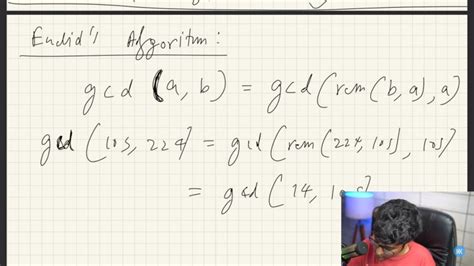 Euclid's Algoritum:
gcd (a, b) = gcd (rem (b, a), a)
gcd (105, 224) = gcd (rem (224, 105), 105)
= gcd (14, 105)